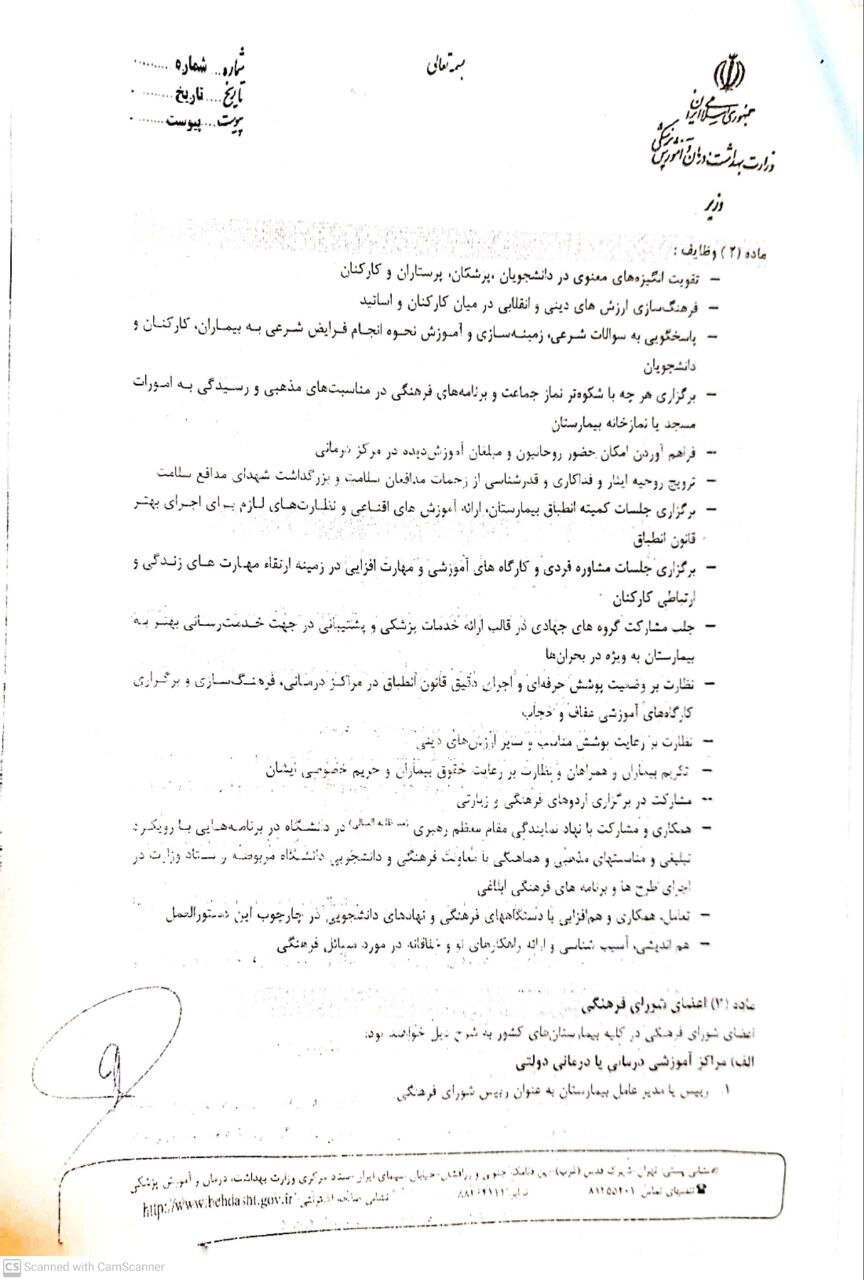 بسمه تعالی
شماره .. شماره ........
تاریخ .... تاریخ ........
پیوست .... پیوست ........
جمهوری اسلامی ایران
وزارت بهداشت، درمان و آموزش پزشکی
وزیر
ماده (۲) وظایف :
– تقویت انگیزه‌های معنوی در دانشجویان ،پزشکان، پرستاران و کارکنان
– فرهنگ‌سازی ارزش های دینی و انقلابی در میان کارکنان و اساتید
– پاسخگویی به سوالات شرعی، زمینه‌سازی و آموزش نحوه انجام فرایض شرعی به بیماران، کارکنان و
دانشجویان
– برگزاری هر چه با شکوه‌تر نماز جماعت و برنامه‌های فرهنگی در مناسبت‌های مذهبی و رسیدگی به امورات
مسجد یا نمازخانه بیمارستان
– فراهم آوردن امکان حضور روحانیون و مبلغان آموزش‌دیده در مرکز درمانی
– ترویج روحیه ایثار و فداکاری و قدرشناسی از زحمات مدافعان سلامت و بزرگداشت شهدای مدافع سلامت
– برگزاری جلسات کمیته انطباق بیمارستان، ارائه آموزش های اقناعی و نظارت‌های لازم برای اجرای بهتر
قانون انطباق
– برگزاری جلسات مشاوره فردی و کارگاه های آموزشی و مهارت افزایی در زمینه ارتقاء مهارت های زندگی و
ارتباطی کارکنان
– جلب مشارکت گروه های جهادی در قالب ارائه خدمات پزشکی و پشتیبانی در جهت خدمت‌رسانی بهتر به
بیمارستان به ویژه در بحران‌ها
– نظارت بر وضعیت پوشش حرفه‌ای و اجرای دقیق قانون انطباق در مراکز درمانی، فرهنگ‌سازی و برگزاری
کارگاه‌های آموزشی عفاف و حجاب
– نظارت بر رعایت پوشش مناسب و سایر ارزش‌های دینی
– تکریم بیماران و همراهان و نظارت بر رعایت حقوق بیماران و حریم خصوصی ایشان
– مشارکت در برگزاری اردوهای فرهنگی و زیارتی
– همکاری و مشارکت با نهاد نمایندگی مقام معظم رهبری (مد ظله العالی) در دانشگاه در برنامه‌هایی با رویکرد
تبلیغی و مناسبتهای مذهبی و هماهنگی با معاونت فرهنگی و دانشجویی دانشگاه مربوطه و ستاد وزارت در
اجرای طرح ها و برنامه های فرهنگی ابلاغی
– تعامل، همکاری و هم‌افزایی با دستگاههای فرهنگی و نهادهای دانشجویی در چارچوب این دستورالعمل
– هم اندیشی، آسیب شناسی و ارائه راهکارهای نو و خلاقانه در مورد مسائل فرهنگی
ماده (۳) اعضای شورای فرهنگی
اعضای شورای فرهنگی در کلیه بیمارستان‌های کشور به شرح ذیل خواهند بود:
الف) مراکز آموزشی درمانی یا درمانی دولتی
۱. رییس یا مدیر عامل بیمارستان به عنوان رییس شورای فرهنگی
نشانی پستی: تهران-شهرک قدس (غرب)- بین فلامک جنوبی و زرافشان-خیابان سیمای ایران-ستاد مرکزی وزارت بهداشت، درمان و آموزش پزشکی
تلفنهای تماس ۸۱۴۵۵۲۰۱ http://www.behdasht.gov.ir
CS Scanned with CamScanner